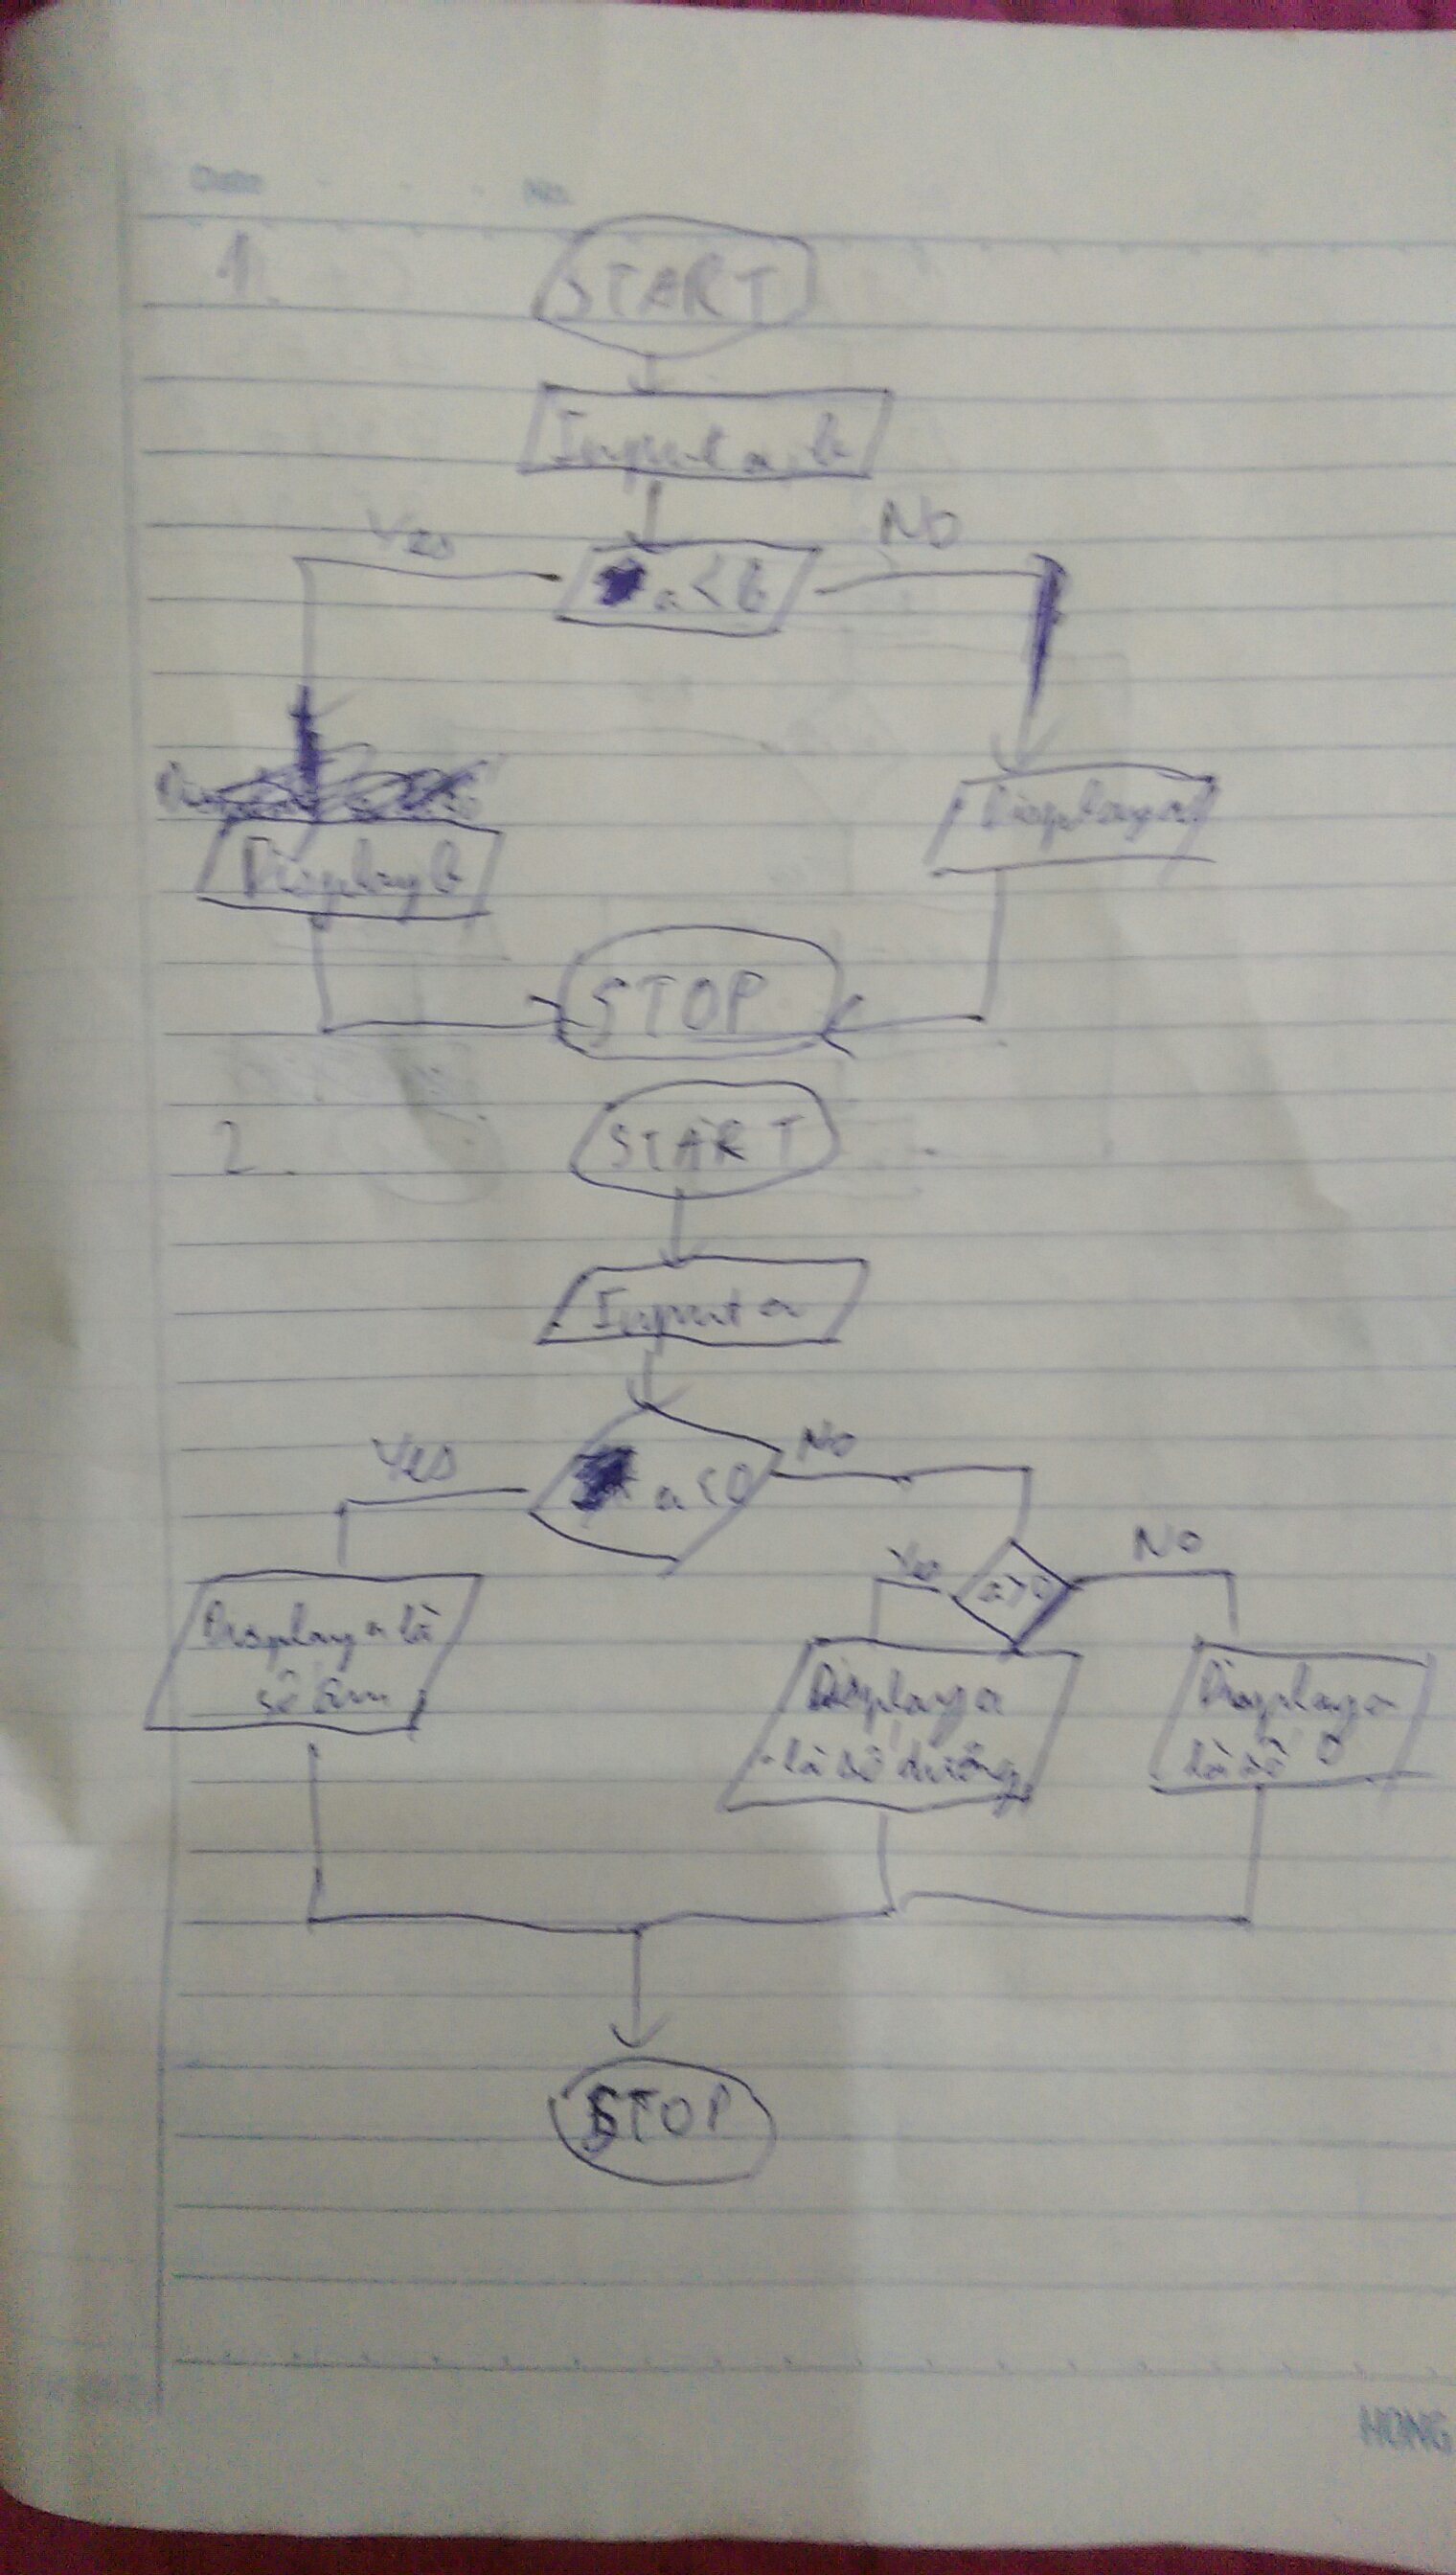 Date No.
1.
START
Input a, b
Yes
NO
a < b
Display b
Display a
STOP
2.
START
Input a
Yes
No
a < 0
Yes
a > 0
No
Display a là
số âm
Display a
là số dương
Display a
là số 0
STOP
HONG